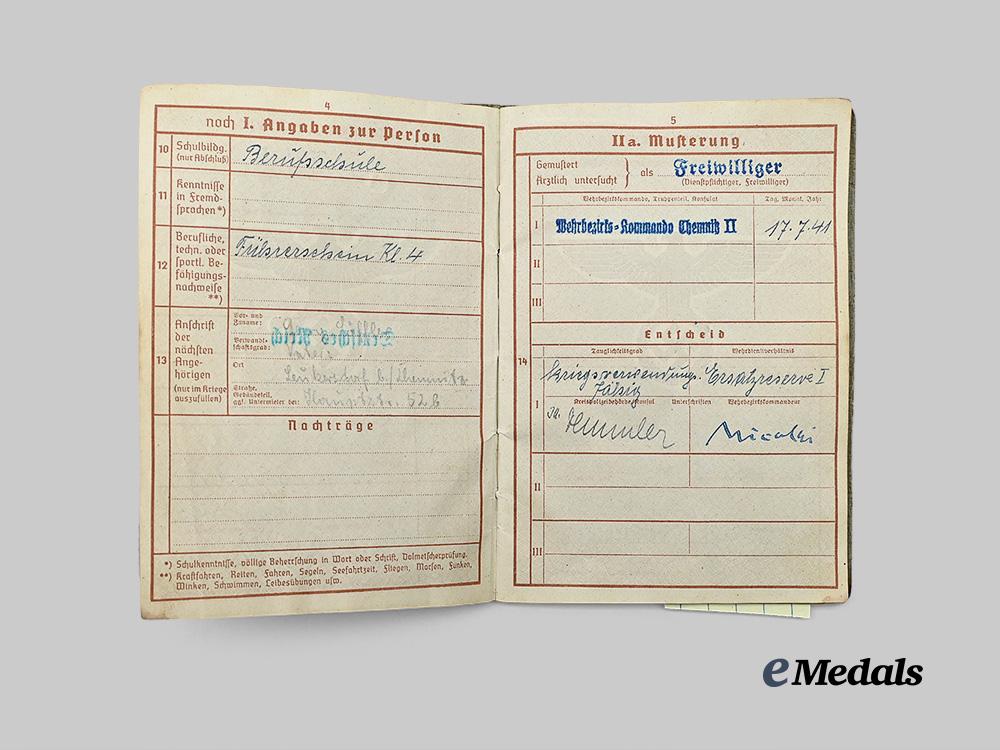 4
noch I. Angaben zur Person
10 Schulbildg. (nur Abschluß) Berufsschule
11 Kenntnisse in Fremdsprachen *)
12 Berufliche, techn. oder sportl. Befähigungsnachweise **) Führerschein Kl. 4
13 Anschrift der nächsten Angehörigen (nur im Kriege auszufüllen)
Vor- und Zuname:
Verwandtschaftsgrad: Vater
Ort
Straße, Gebäudeteil, ggf. Untermieter bei: Hauptstr. 52B
Nachträge
*) Schulkenntnisse, völlige Beherrschung in Wort oder Schrift, Dolmetscherprüfung.
**) Kraftfahren, Reiten, Fahren, Segeln, Seefahrtzeit, Fliegen, Morsen, Funken,
Winken, Schwimmen, Leibesübungen usw.
5
IIa. Musterung
Gemustert
Ärztlich untersucht } als Freiwilliger
(Dienstpflichtiger, Freiwilliger)
Wehrbezirkskommando, Truppenteil, Konsulat Tag, Monat, Jahr
I Wehrbezirks-Kommando Chemnitz II 17.7.41
II
III
Entscheid
14
Tauglichkeitsgrad Wehrdienstverhältnis
kriegsverwendungs- Ersatzreserve I
fähig
I Kreispolizeibehörde/Konsul Unterschriften Wehrbezirkskommandeur
II
III
eMedals